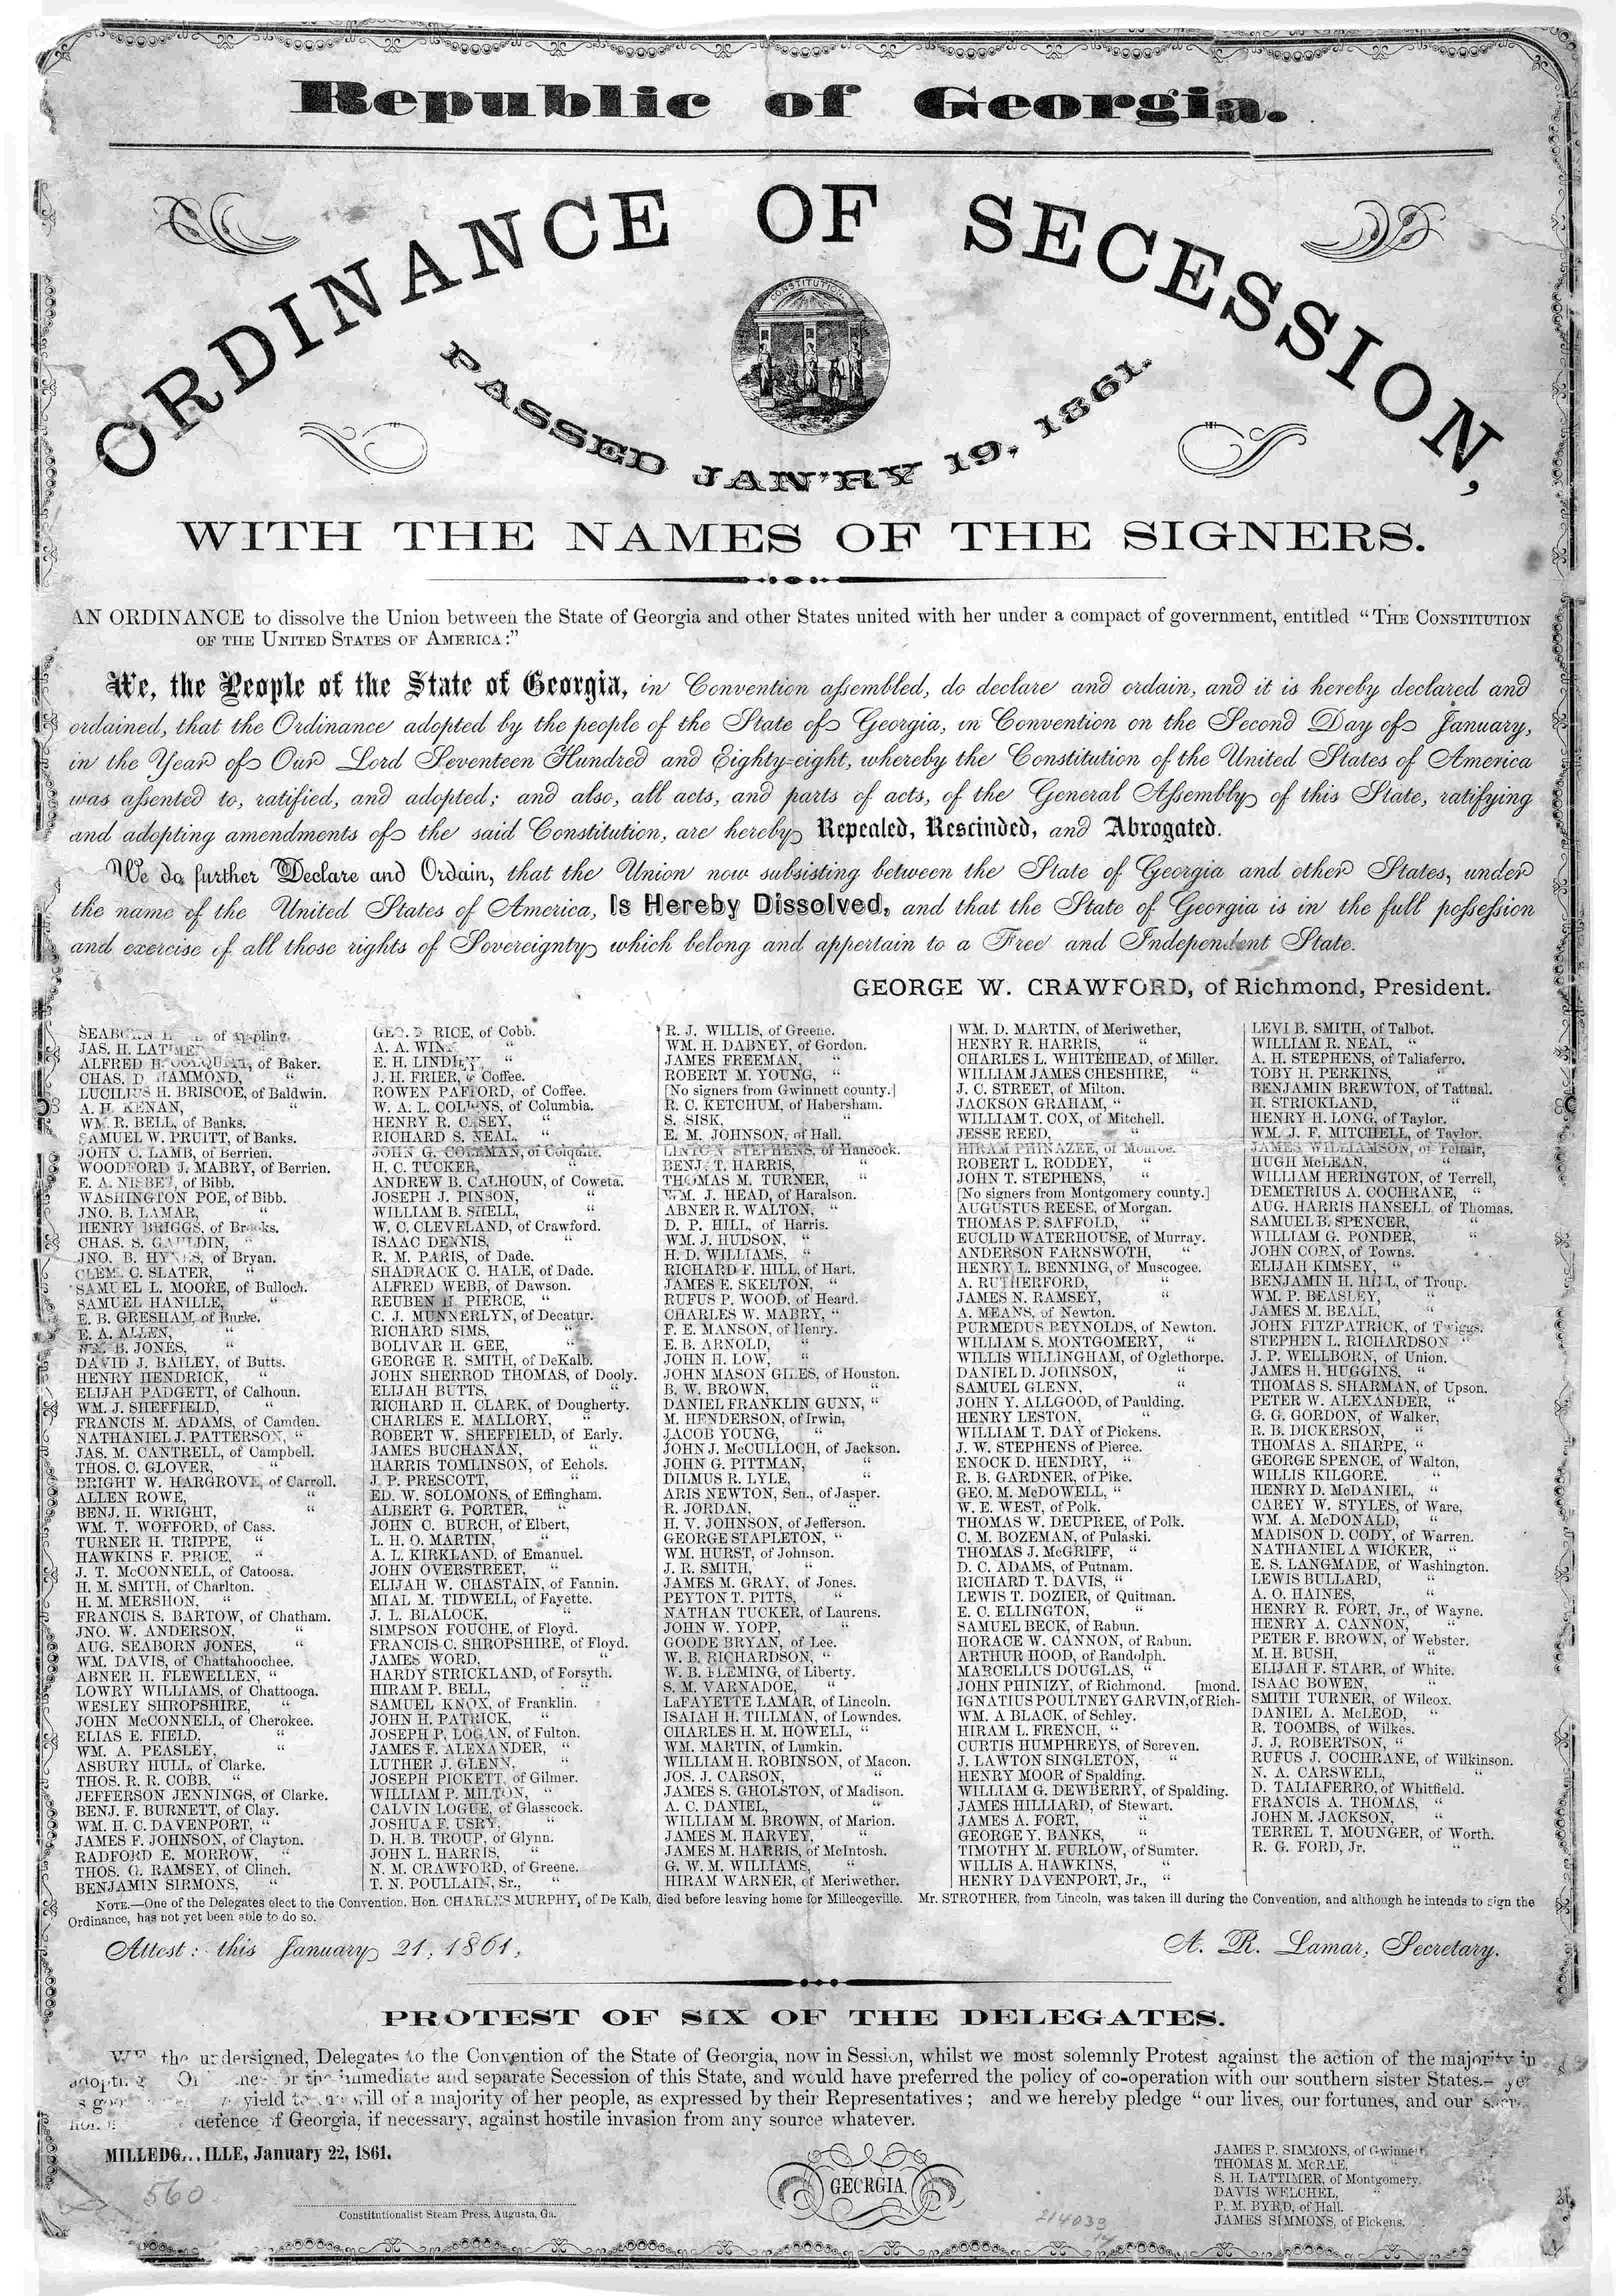 Republic of Georgia.
ORDINANCE OF SECESSION,
CONSTITUTION
PASSED JAN'RY 19, 1861.
WITH THE NAMES OF THE SIGNERS.
AN ORDINANCE to dissolve the Union between the State of Georgia and other States united with her under a compact of government, entitled “The Constitution
of the United States of America:”
We, the People of the State of Georgia, in Convention assembled, do declare and ordain, and it is hereby declared and
ordained, that the Ordinance adopted by the people of the State of Georgia, in Convention on the Second Day of January,
in the Year of Our Lord Seventeen Hundred and Eighty-eight, whereby the Constitution of the United States of America
was assented to, ratified, and adopted; and also, all acts, and parts of acts, of the General Assembly of this State, ratifying
and adopting amendments of the said Constitution, are hereby Repealed, Rescinded, and Abrogated.
We do further Declare and Ordain, that the Union now subsisting between the State of Georgia and other States, under
the name of the United States of America, Is Hereby Dissolved, and that the State of Georgia is in the full possession
and exercise of all those rights of Sovereignty which belong and appertain to a Free and Independent State.
GEORGE W. CRAWFORD, of Richmond, President.
of Appling.
JAS. H. LATIMER
ALFRED H. COLQUITT, of Baker.
CHAS. D. HAMMOND, “
LUCILIUS H. BRISCOE, of Baldwin.
A. H. KENAN, “
WM. R. BELL, of Banks.
SAMUEL W. PRUITT, of Banks.
JOHN C. LAMB, of Berrien.
WOODFORD J. MABRY, of Berrien.
E. A. NISBET, of Bibb.
WASHINGTON POE, of Bibb.
JNO. B. LAMAR, “
HENRY BRIGGS, of Brooks.
CHAS. S. GAULDIN, “
JNO. B. HYNES, of Bryan.
CLEM. C. SLATER, “
SAMUEL L. MOORE, of Bulloch.
SAMUEL HANILLE, “
E. B. GRESHAM, of Burke.
E. A. ALLEN, “
WM. B. JONES, “
DAVID J. BAILEY, of Butts.
HENRY HENDRICK, “
ELIJAH PADGETT, of Calhoun.
WM. J. SHEFFIELD, “
FRANCIS M. ADAMS, of Camden.
NATHANIEL J. PATTERSON, “
JAS. M. CANTRELL, of Campbell.
THOS. C. GLOVER, “
BRIGHT W. HARGROVE, of Carroll.
ALLEN ROWE, “
BENJ. H. WRIGHT, “
WM. T. WOFFORD, of Cass.
TURNER H. TRIPPE, “
HAWKINS F. PRICE, “
J. T. McCONNELL, of Catoosa.
H. M. SMITH, of Charlton.
H. M. MERSHON, “
FRANCIS S. BARTOW, of Chatham.
JNO. W. ANDERSON, “
AUG. SEABORN JONES, “
WM. DAVIS, of Chattahoochee.
ABNER H. FLEWELLEN, “
LOWRY WILLIAMS, of Chattooga.
WESLEY SHROPSHIRE, “
JOHN McCONNELL, of Cherokee.
ELIAS E. FIELD, “
WM. A. PEASLEY, “
ASBURY HULL, of Clarke.
THOS. R. R. COBB, “
JEFFERSON JENNINGS, of Clarke.
BENJ. F. BURNETT, of Clay.
WM. H. C. DAVENPORT, “
JAMES F. JOHNSON, of Clayton.
RADFORD E. MORROW, “
THOS. G. RAMSEY, of Clinch.
BENJAMIN SIRMONS, “
GEO. D. RICE, of Cobb.
A. A. WINN “
E. H. LINDLEY, “
J. H. FRIER, of Coffee.
ROWEN PAFFORD, of Coffee.
W. A. L. COLLINS, of Columbia.
HENRY R. CASEY, “
RICHARD S. NEAL, “
JOHN G. COLEMAN, of Colquitt.
H. C. TUCKER, “
ANDREW B. CALHOUN, of Coweta.
JOSEPH J. PINSON, “
WILLIAM B. SHELL, “
W. C. CLEVELAND, of Crawford.
ISAAC DENNIS, “
R. M. PARIS, of Dade.
SHADRACK C. HALE, of Dade.
ALFRED WEBB, of Dawson.
REUBEN H. PIERCE, “
C. J. MUNNERLYN, of Decatur.
RICHARD SIMS, “
BOLIVAR H. GEE, “
GEORGE R. SMITH, of DeKalb.
JOHN SHERROD THOMAS, of Dooly.
ELIJAH BUTTS, “
RICHARD H. CLARK, of Dougherty.
CHARLES E. MALLORY, “
ROBERT W. SHEFFIELD, of Early.
JAMES BUCHANAN, “
HARRIS TOMLINSON, of Echols.
J. P. PRESCOTT, “
ED. W. SOLOMONS, of Effingham.
ALBERT G. PORTER, “
JOHN C. BURCH, of Elbert,
L. H. O. MARTIN, “
A. L. KIRKLAND, of Emanuel.
JOHN OVERSTREET, “
ELIJAH W. CHASTAIN, of Fannin.
MIAL M. TIDWELL, of Fayette.
J. L. BLALOCK, “
SIMPSON FOUCHE, of Floyd.
FRANCIS C. SHROPSHIRE, of Floyd.
JAMES WORD, “
HARDY STRICKLAND, of Forsyth.
HIRAM P. BELL, “
SAMUEL KNOX, of Franklin.
JOHN H. PATRICK, “
JOSEPH P. LOGAN, of Fulton.
JAMES F. ALEXANDER, “
LUTHER J. GLENN, “
JOSEPH PICKETT, of Gilmer.
WILLIAM P. MILTON, “
CALVIN LOGUE, of Glasscock.
JOSHUA F. USRY, “
D. H. B. TROUP, of Glynn.
JOHN L. HARRIS, “
N. M. CRAWFORD, of Greene.
T. N. POULLAIN, Sr., “
R. J. WILLIS, of Greene.
WM. H. DABNEY, of Gordon.
JAMES FREEMAN, “
ROBERT M. YOUNG, “
[No signers from Gwinnett county.]
R. C. KETCHUM, of Habersham.
S. SISK, “
E. M. JOHNSON, of Hall.
LINTON STEPHENS, of Hancock.
BENJ. T. HARRIS, “
THOMAS M. TURNER, “
WM. J. HEAD, of Haralson.
ABNER R. WALTON, “
D. P. HILL, of Harris.
WM. J. HUDSON, “
H. D. WILLIAMS, “
RICHARD F. HILL, of Hart.
JAMES E. SKELTON, “
RUFUS P. WOOD, of Heard.
CHARLES W. MABRY, “
F. E. MANSON, of Henry.
E. B. ARNOLD, “
JOHN H. LOW, “
JOHN MASON GILES, of Houston.
B. W. BROWN, “
DANIEL FRANKLIN GUNN, “
M. HENDERSON, of Irwin,
JACOB YOUNG, “
JOHN J. McCULLOCH, of Jackson.
JOHN G. PITTMAN, “
DILMUS R. LYLE, “
ARIS NEWTON, Sen., of Jasper.
R. JORDAN, “
H. V. JOHNSON, of Jefferson.
GEORGE STAPLETON, “
WM. HURST, of Johnson.
J. R. SMITH, “
JAMES M. GRAY, of Jones.
PEYTON T. PITTS, “
NATHAN TUCKER, of Laurens.
JOHN W. YOPP, “
GOODE BRYAN, of Lee.
W. B. RICHARDSON, “
W. B. FLEMING, of Liberty.
S. M. VARNADOE, “
LaFAYETTE LAMAR, of Lincoln.
ISAIAH H. TILLMAN, of Lowndes.
CHARLES H. M. HOWELL, “
WM. MARTIN, of Lumkin.
WILLIAM H. ROBINSON, of Macon.
JOS. J. CARSON, “
JAMES S. GHOLSTON, of Madison.
A. C. DANIEL, “
WILLIAM M. BROWN, of Marion.
JAMES M. HARVEY, “
JAMES M. HARRIS, of McIntosh.
G. W. M. WILLIAMS, “
HIRAM WARNER, of Meriwether.
WM. D. MARTIN, of Meriwether,
HENRY R. HARRIS, “
CHARLES L. WHITEHEAD, of Miller.
WILLIAM JAMES CHESHIRE, “
J. C. STREET, of Milton.
JACKSON GRAHAM, “
WILLIAM T. COX, of Mitchell.
JESSE REED, “
HIRAM PHINAZEE, of Monroe.
ROBERT L. RODDEY, “
JOHN T. STEPHENS, “
[No signers from Montgomery county.]
AUGUSTUS REESE, of Morgan.
THOMAS P. SAFFOLD, “
EUCLID WATERHOUSE, of Murray.
ANDERSON FARNSWOTH, “
HENRY L. BENNING, of Muscogee.
A. RUTHERFORD, “
JAMES N. RAMSEY, “
A. MEANS, of Newton.
PURMEDUS REYNOLDS, of Newton.
WILLIAM S. MONTGOMERY, “
WILLIS WILLINGHAM, of Oglethorpe.
DANIEL D. JOHNSON, “
SAMUEL GLENN, “
JOHN Y. ALLGOOD, of Paulding.
HENRY LESTON, “
WILLIAM T. DAY of Pickens.
J. W. STEPHENS of Pierce.
ENOCK D. HENDRY, “
R. B. GARDNER, of Pike.
GEO. M. McDOWELL, “
W. E. WEST, of Polk.
THOMAS W. DEUPREE, of Polk.
C. M. BOZEMAN, of Pulaski.
THOMAS J. McGRIFF, “
D. C. ADAMS, of Putnam.
RICHARD T. DAVIS, “
LEWIS T. DOZIER, of Quitman.
E. C. ELLINGTON, “
SAMUEL BECK, of Rabun.
HORACE W. CANNON, of Rabun.
ARTHUR HOOD, of Randolph.
MARCELLUS DOUGLAS, “
JOHN PHINIZY, of Richmond. [mond.
IGNATIUS POULTNEY GARVIN, of Rich-
WM. A BLACK, of Schley.
HIRAM L. FRENCH, “
CURTIS HUMPHREYS, of Screven.
J. LAWTON SINGLETON, “
HENRY MOOR of Spalding.
WILLIAM G. DEWBERRY, of Spalding.
JAMES HILLIARD, of Stewart.
JAMES A. FORT, “
GEORGE Y. BANKS, “
TIMOTHY M. FURLOW, of Sumter.
WILLIS A. HAWKINS, “
HENRY DAVENPORT, Jr., “
LEVI B. SMITH, of Talbot.
WILLIAM R. NEAL, “
A. H. STEPHENS, of Taliaferro.
TOBY H. PERKINS, “
BENJAMIN BREWTON, of Tattnal.
H. STRICKLAND, “
HENRY H. LONG, of Taylor.
WM. J. F. MITCHELL, of Taylor.
JAMES WILLIAMSON, of Telfair,
HUGH McLEAN, “
WILLIAM HERINGTON, of Terrell,
DEMETRIUS A. COCHRANE, “
AUG. HARRIS HANSELL, of Thomas.
SAMUEL B. SPENCER, “
WILLIAM G. PONDER, “
JOHN CORN, of Towns.
ELIJAH KIMSEY, “
BENJAMIN H. HILL, of Troup.
WM. P. BEASLEY, “
JAMES M. BEALL, “
JOHN FITZPATRICK, of Twiggs.
STEPHEN L. RICHARDSON “
J. P. WELLBORN, of Union.
JAMES H. HUGGINS, “
THOMAS S. SHARMAN, of Upson.
PETER W. ALEXANDER, “
G. G. GORDON, of Walker,
R. B. DICKERSON, “
THOMAS A. SHARPE, “
GEORGE SPENCE, of Walton,
WILLIS KILGORE. “
HENRY D. McDANIEL, “
CAREY W. STYLES, of Ware,
WM. A. McDONALD, “
MADISON D. CODY, of Warren.
NATHANIEL A WICKER, “
E. S. LANGMADE, of Washington.
LEWIS BULLARD, “
A. O. HAINES, “
HENRY R. FORT, Jr., of Wayne.
HENRY A. CANNON, “
PETER F. BROWN, of Webster.
M. H. BUSH, “
ELIJAH F. STARR, of White.
ISAAC BOWEN, “
SMITH TURNER, of Wilcox.
DANIEL A. McLEOD, “
R. TOOMBS, of Wilkes.
J. J. ROBERTSON, “
RUFUS J. COCHRANE, of Wilkinson.
N. A. CARSWELL, “
D. TALIAFERRO, of Whitfield.
FRANCIS A. THOMAS, “
JOHN M. JACKSON, “
TERREL T. MOUNGER, of Worth.
R. G. FORD, Jr. “
Note.—One of the Delegates elect to the Convention, Hon. CHARLES MURPHY, of De Kalb, died before leaving home for Milleegeville. Mr. STROTHER, from Lincoln, was taken ill during the Convention, and although he intends to sign the
Ordinance, has not yet been able to do so.
Attest: this January 21, 1861,
A. R. Lamar, Secretary.
PROTEST OF SIX OF THE DELEGATES.
WE the undersigned, Delegates to the Convention of the State of Georgia, now in Session, whilst we most solemnly Protest against the action of the majority in
adopting Ordinance for the immediate and separate Secession of this State, and would have preferred the policy of co-operation with our southern sister States.— yet
yield to the will of a majority of her people, as expressed by their Representatives; and we hereby pledge “our lives, our fortunes, and our
defence of Georgia, if necessary, against hostile invasion from any source whatever.
MILLEDG...ILLE, January 22, 1861.
JAMES P. SIMMONS, of Gwinnett
THOMAS M. McRAE,
S. H. LATTIMER, of Montgomery.
DAVIS WELCHEL, “
P. M. BYRD, of Hall.
JAMES SIMMONS, of Pickens.
560
Constitutionalist Steam Press, Augusta, Ga.
GEORGIA.
214039